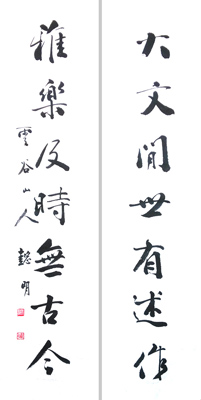 大文間世有述作
雅樂及時無古今
雲谷山人 懿明